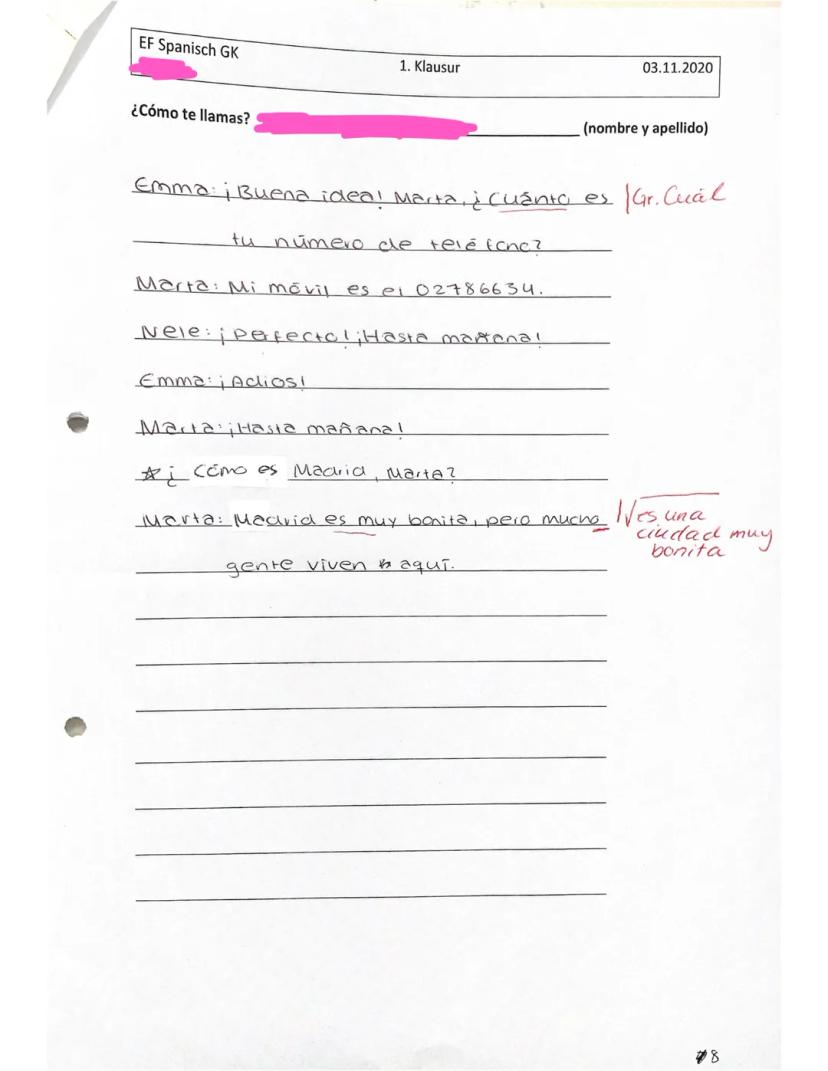 EF Spanisch GK
1. Klausur 03.11.2020
¿Cómo te llamas? (nombre y apellido)
Emma: ¡Buena idea! Marta, ¿cuánto es |Gr. Cuál
tu número de teléfono?
Marta: Mi móvil es el 02786634.
Nele: ¡Perfecto! ¡Hasta mañana!
Emma: ¡Adios!
Marta: ¡Hasta mañana!
¿Cómo es Madrid, Marta?
Marta: Madrid es muy bonita, pero mucho |√es una
ciudad muy
bonita
gente viven aquí.
8